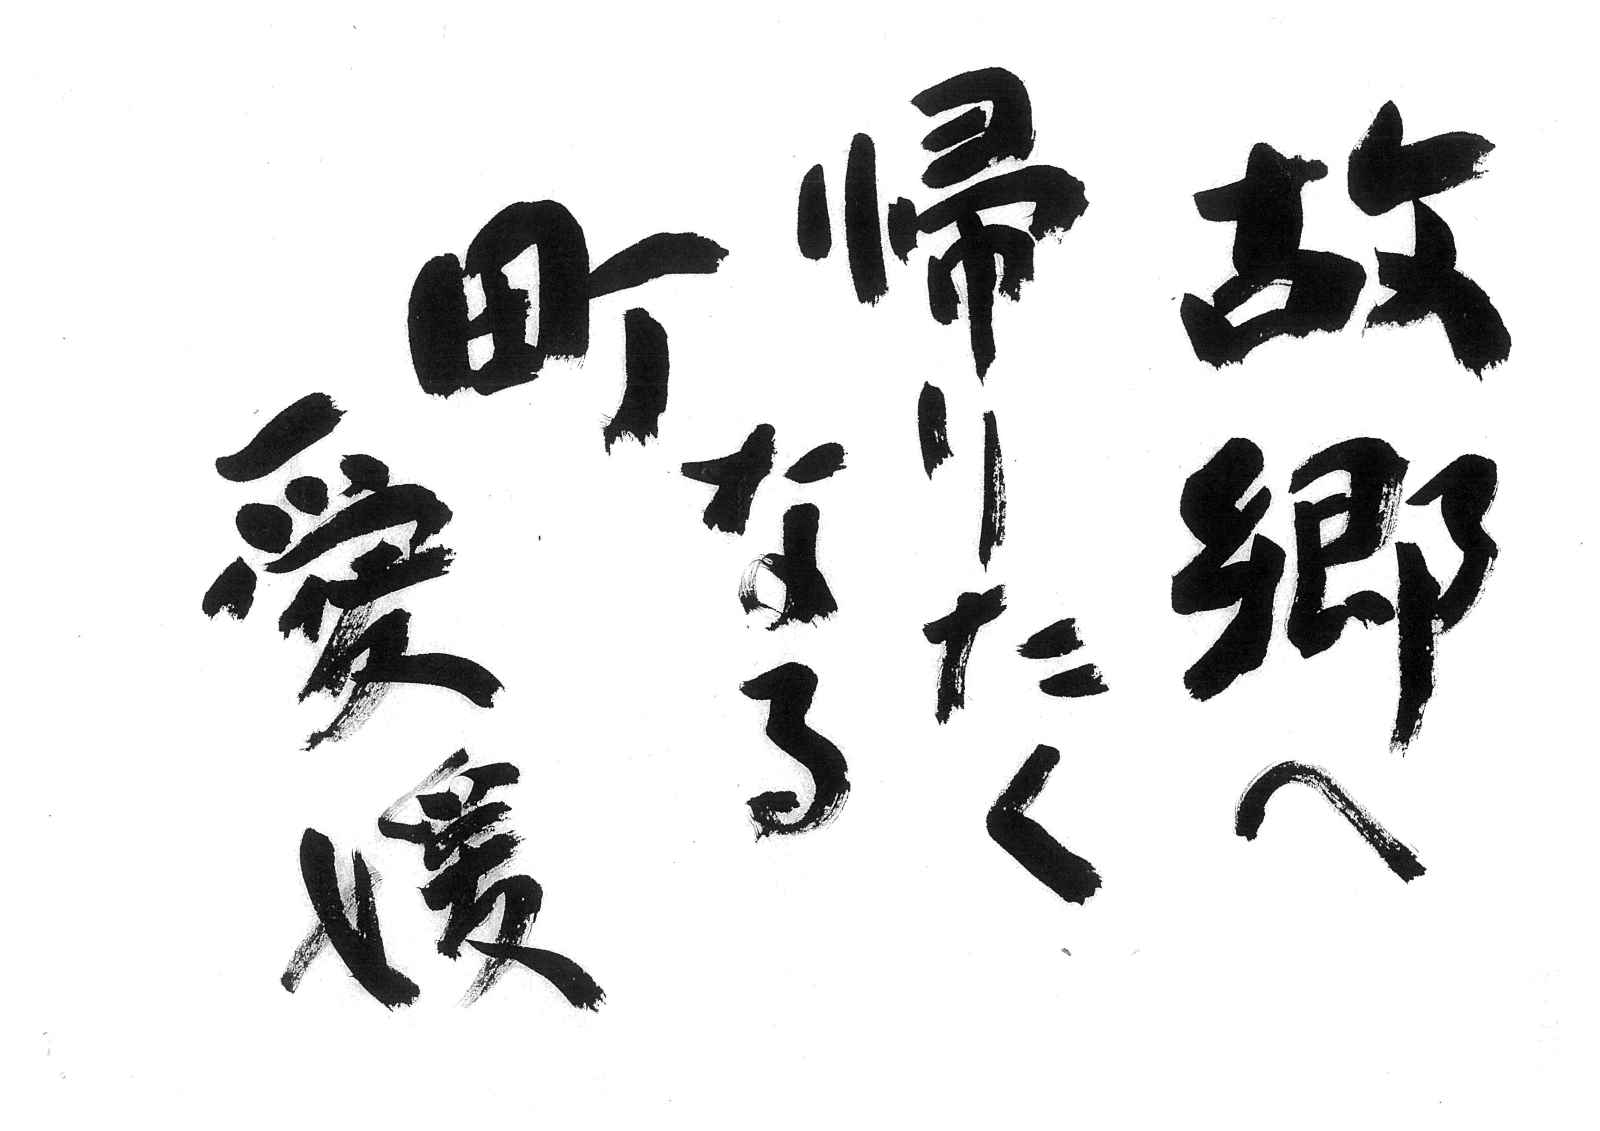 故郷へ
帰りたく
なる
町
愛媛